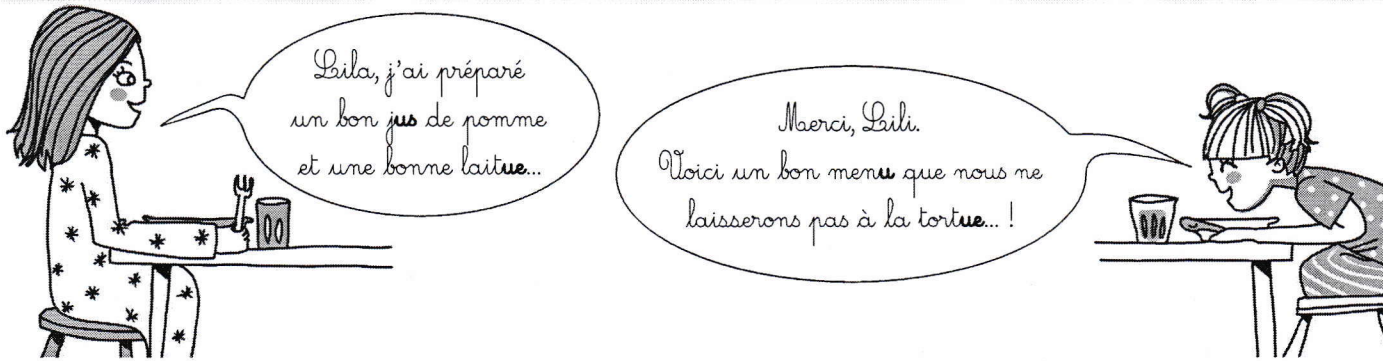 Lila, j'ai préparé
un bon jus de pomme
et une bonne laitue...
Merci, Lili.
Voici un bon menu que nous ne
laisserons pas à la tortue... !